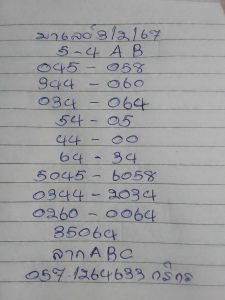 มาเลย์ 3/2/67
5-4 A B
045 - 058
344 - 060
034 - 064
54 - 05
44 - 00
64 - 34
5045 - 6058
0344 - 2034
0260 - 0064
35064
ลาก A B C
057-1264633